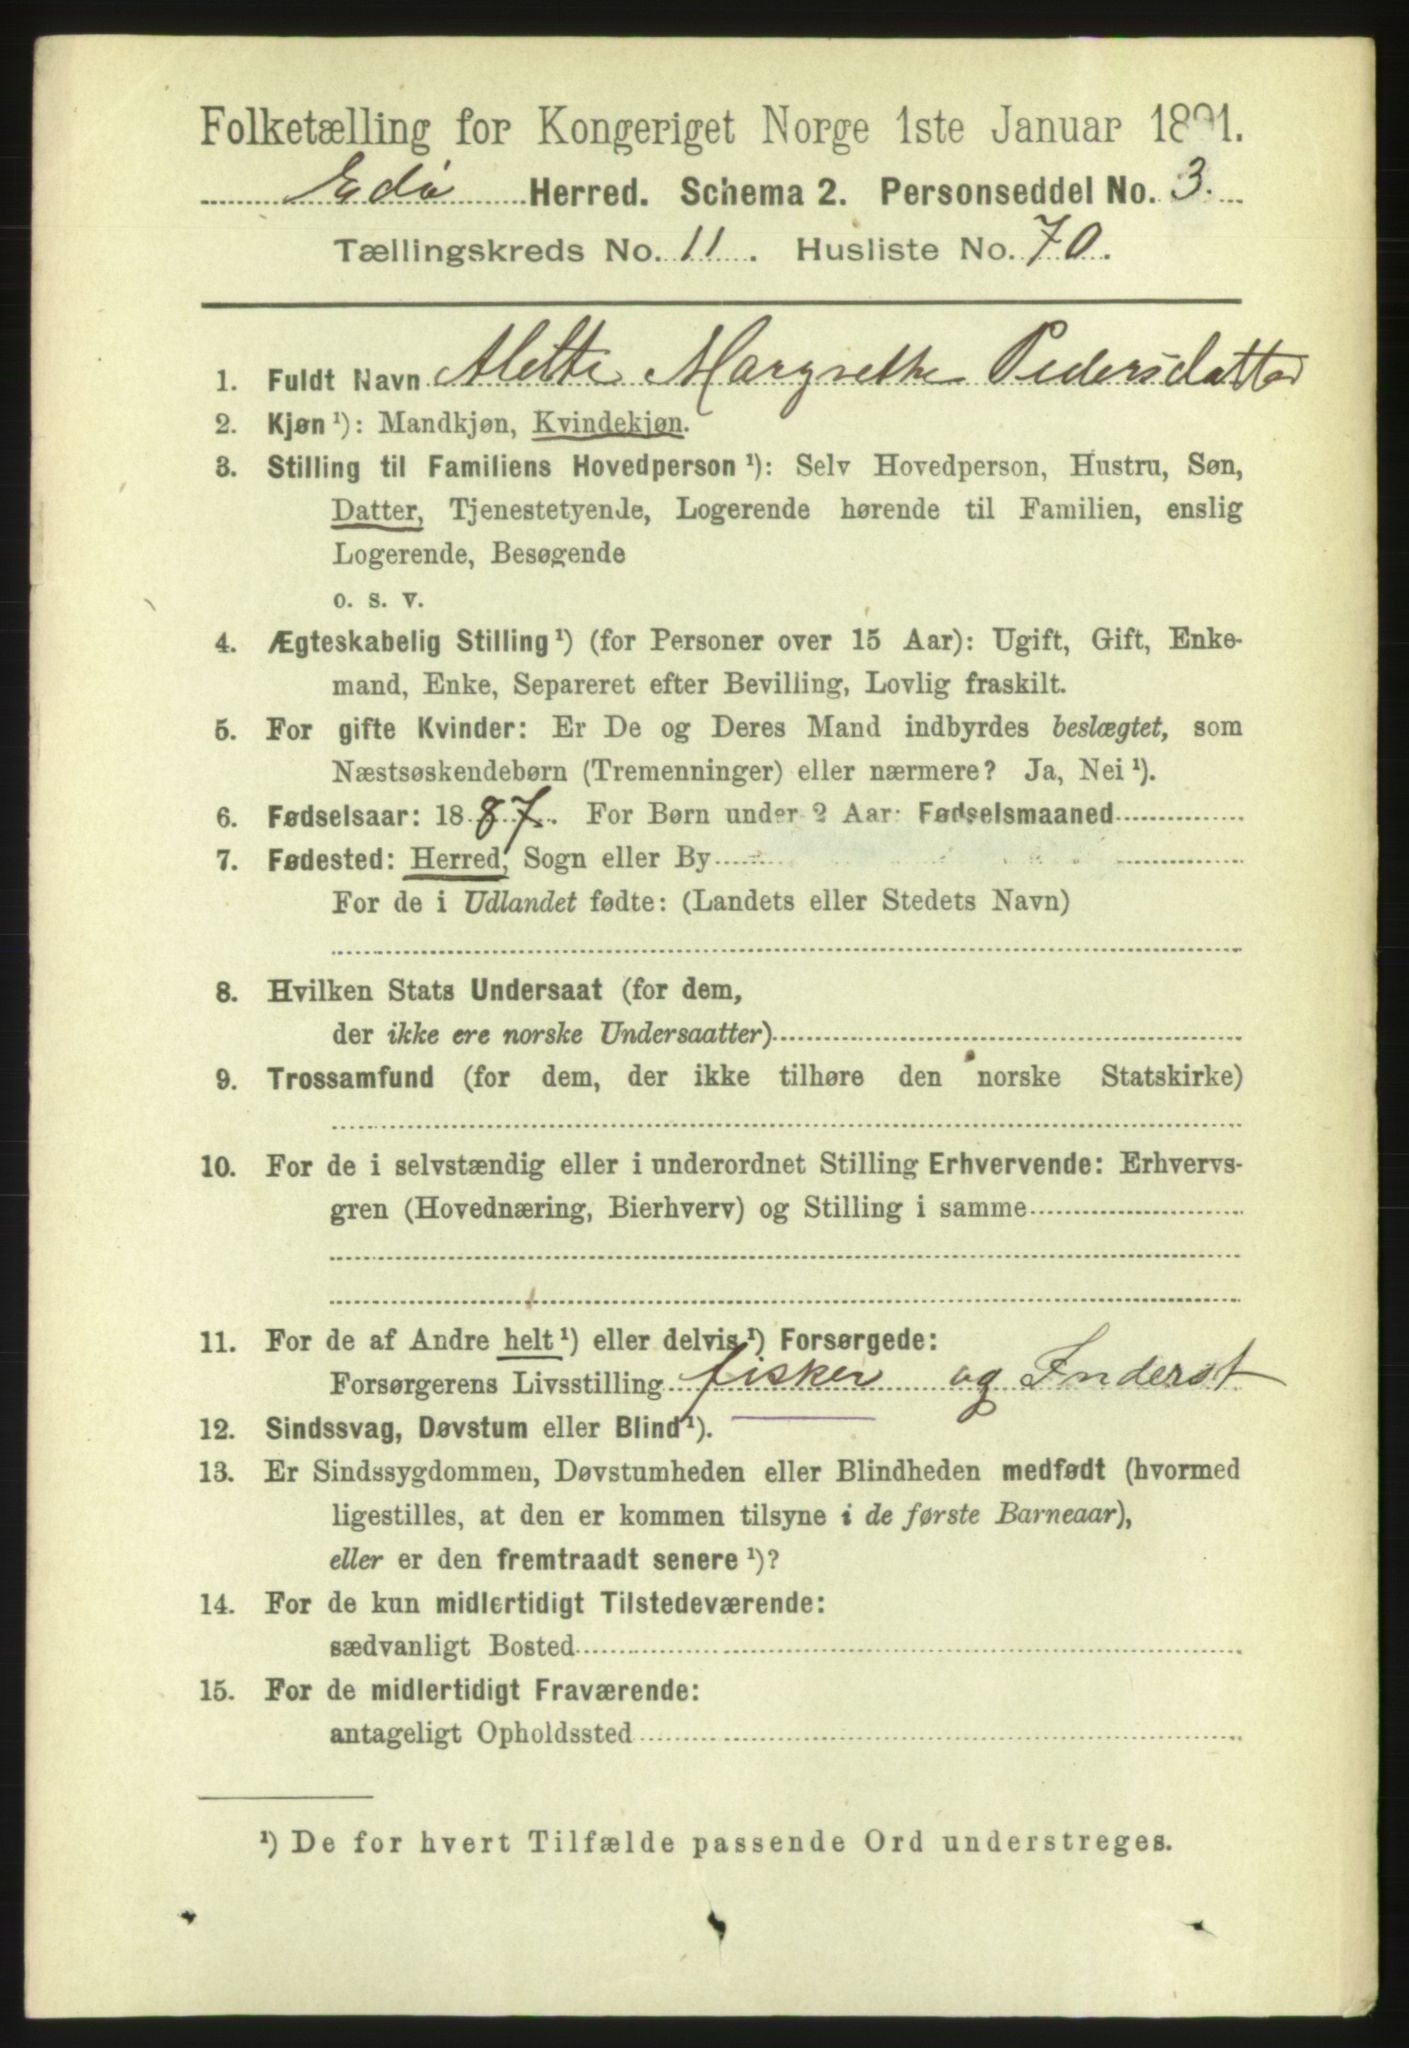 Folketælling for Kongeriget Norge 1ste Januar 1891.
Edø Herred. Schema 2. Personseddel No. 3.
Tællingskreds No. 11. Husliste No. 70.
1. Fuldt Navn Alette Margrethe Pedersdatter
2. Kjøn ¹): Mandkjøn, Kvindekjøn.
3. Stilling til Familiens Hovedperson ¹): Selv Hovedperson, Hustru, Søn,
Datter, Tjenestetyende, Logerende hørende til Familien, enslig
Logerende, Besøgende
o. s. v.
4. Ægteskabelig Stilling ¹) (for Personer over 15 Aar): Ugift, Gift, Enke-
mand, Enke, Separeret efter Bevilling, Lovlig fraskilt.
5. For gifte Kvinder: Er De og Deres Mand indbyrdes beslægtet, som
Næstsøskendebørn (Tremenninger) eller nærmere? Ja, Nei ¹).
6. Fødselsaar: 1887. For Børn under 2 Aar: Fødselsmaaned
7. Fødested: Herred, Sogn eller By
For de i Udlandet fødte: (Landets eller Stedets Navn)
8. Hvilken Stats Undersaat (for dem,
der ikke ere norske Undersaatter)
9. Trossamfund (for dem, der ikke tilhøre den norske Statskirke)
10. For de i selvstændig eller i underordnet Stilling Erhvervende: Erhvervs-
gren (Hovednæring, Bierhverv) og Stilling i samme
11. For de af Andre helt ¹) eller delvis ¹) Forsørgede:
Forsørgerens Livsstilling fisker og Inderst
12. Sindssvag, Døvstum eller Blind ¹).
13. Er Sindssygdommen, Døvstumheden eller Blindheden medfødt (hvormed
ligestilles, at den er kommen tilsyne i de første Barneaar),
eller er den fremtraadt senere ¹)?
14. For de kun midlertidigt Tilstedeværende:
sædvanligt Bosted
15. For de midlertidigt Fraværende:
antageligt Opholdssted
¹) De for hvert Tilfælde passende Ord understreges.